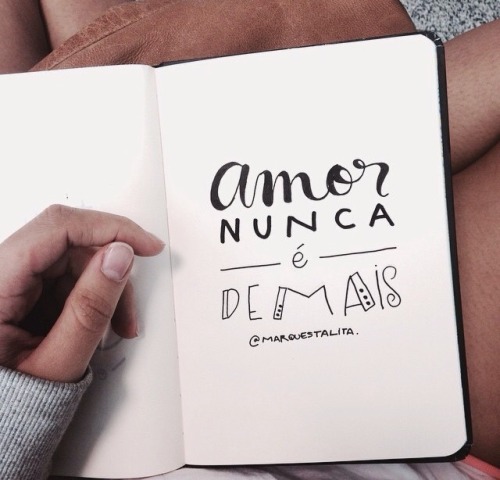 amor
NUNCA
é
DEMAiS
@MARQUESTALITA.